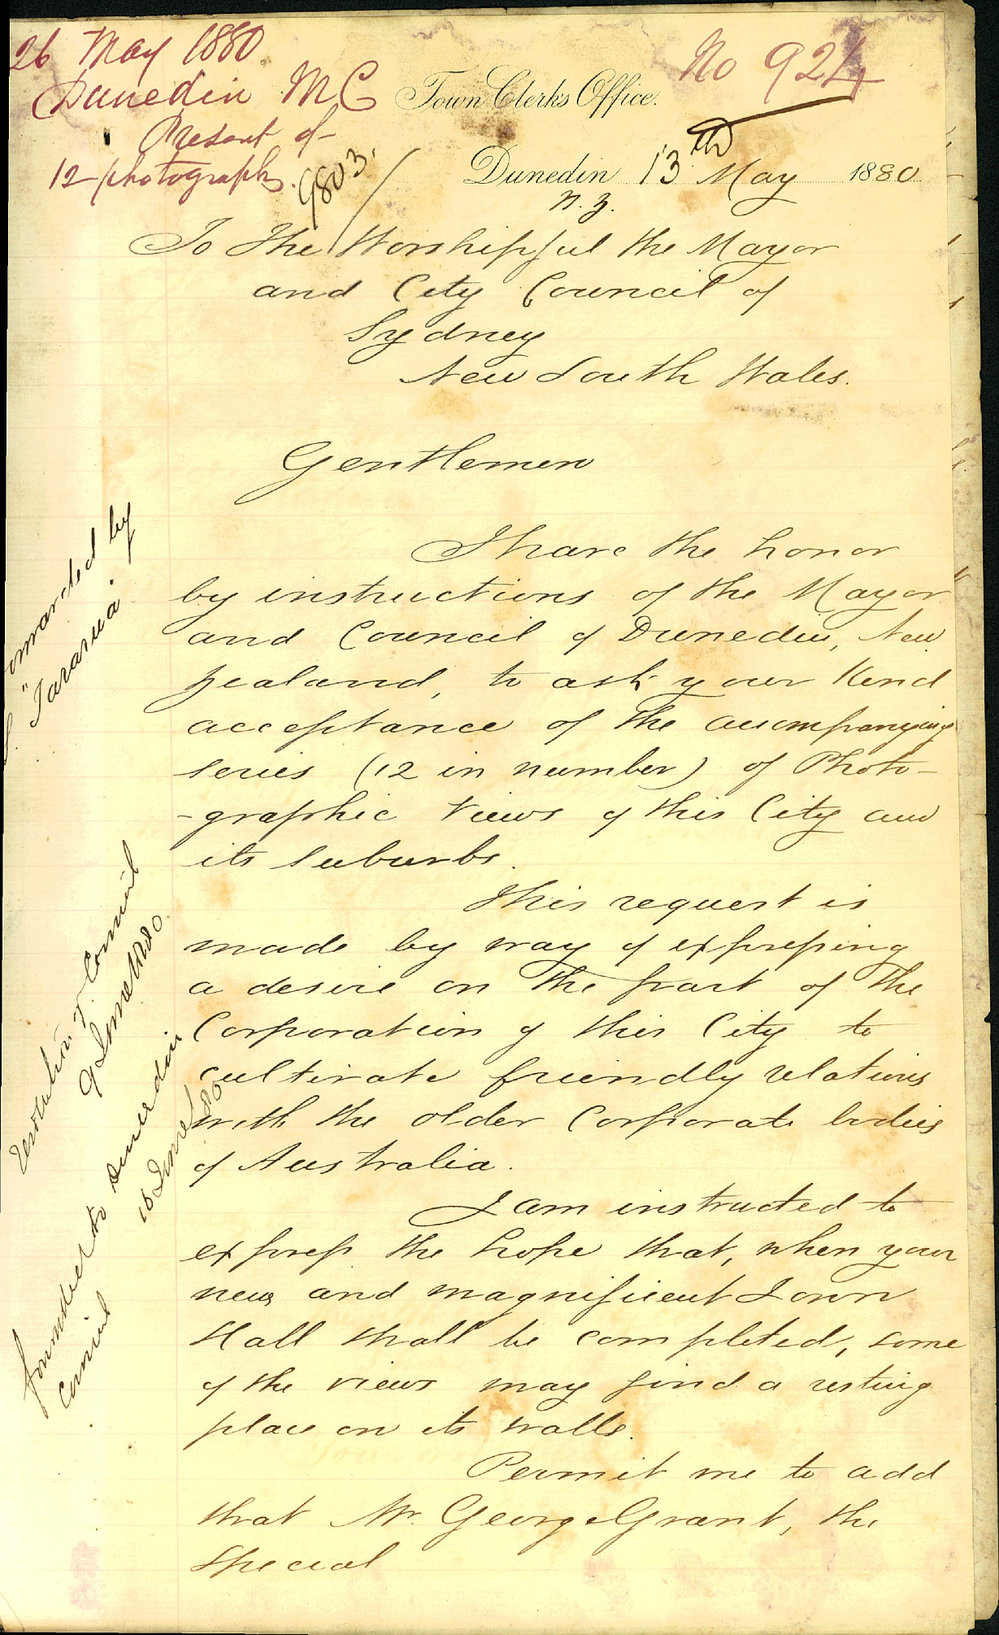 26 May 1880
Dunedin M C
Present of
12 photographs.
No 924
9803.
Town Clerk's Office.
Dunedin 13th May 1880
N.Z.
To The Worshipful the Mayor
and City Council of
Sydney
New South Wales.
Gentlemen
I have the honor
by instructions of the Mayor
and Council of Dunedin, New
Zealand, to ask your kind
acceptance of the accompanying
series (12 in number) of Photo-
-graphic views of this City and
its suburbs.
This request is
made by way of expressing
a desire on the part of the
Corporation of this City to
cultivate friendly relations
with the older Corporate bodies
of Australia.
I am instructed to
express the hope that, when your
new and magnificent Town
Hall shall be completed, some
of the views may find a resting
place on its walls.
Permit me to add
that Mr. George Grant, the
special
by
"Tararua"
Resolution of Council
9 June 1880.
forwarded to Dunedin
Council
16 June /80